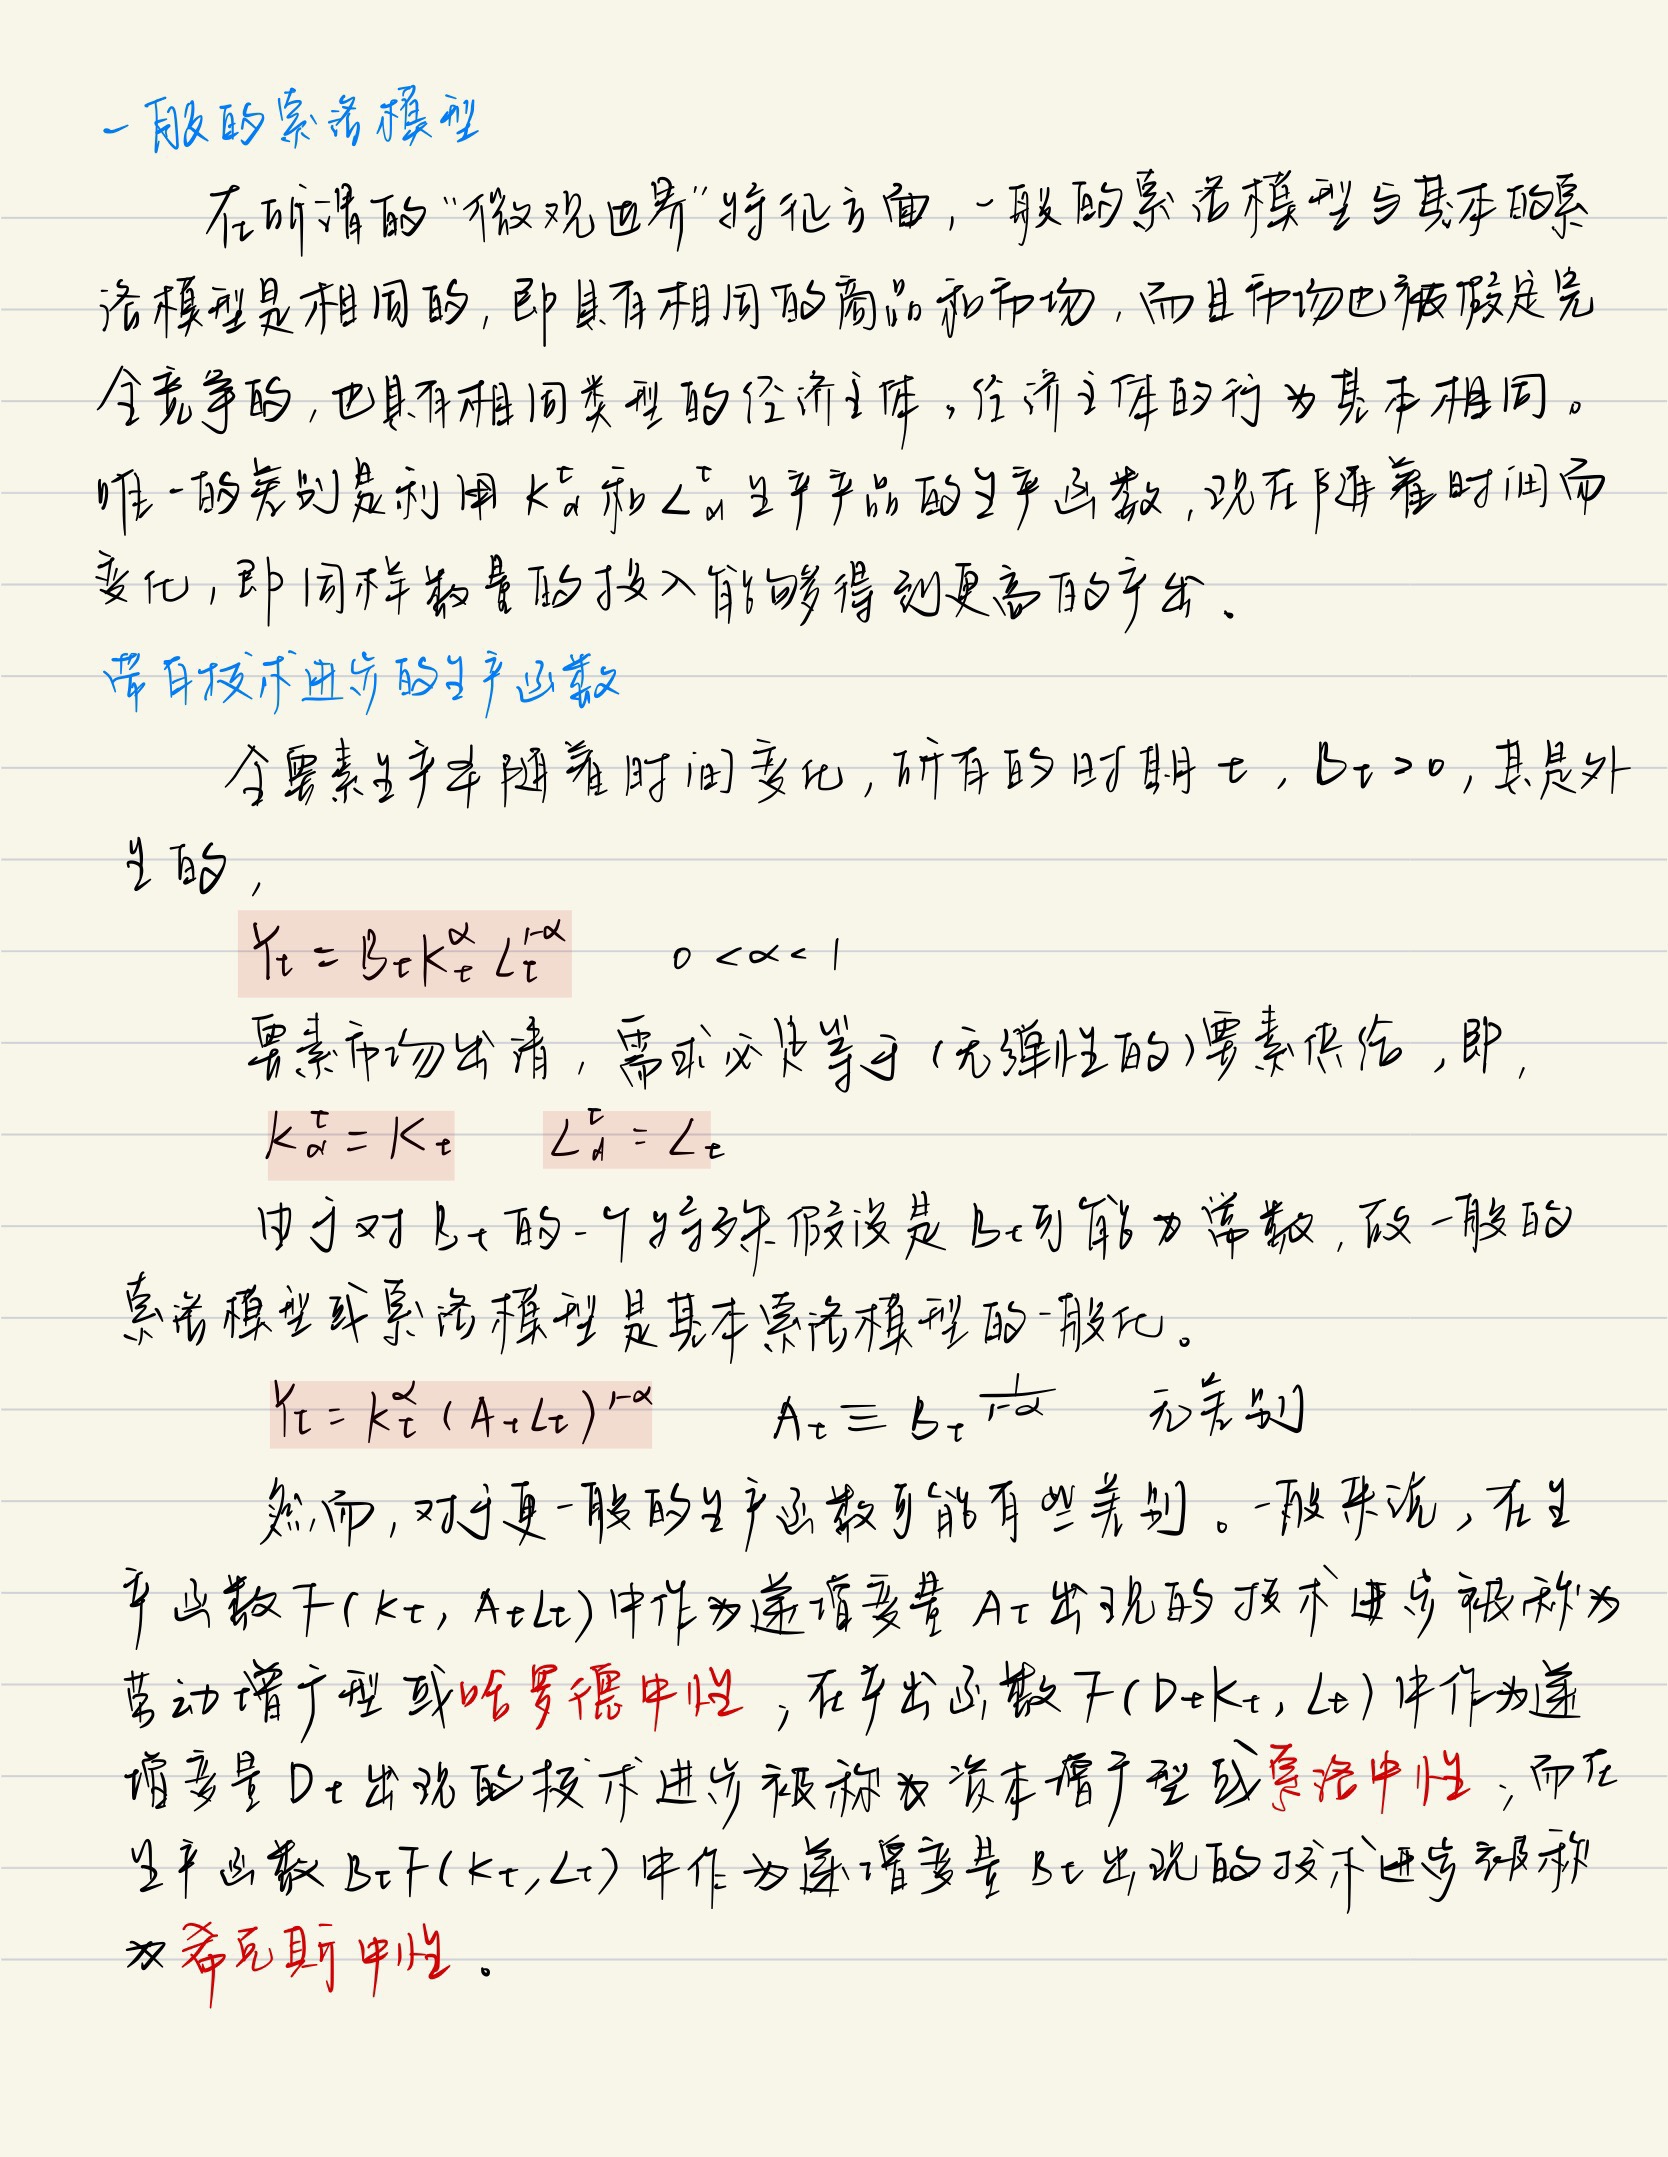 一般的索洛模型
在所谓的“微观世界”特征方面,一般的索洛模型与基本的索
洛模型是相同的,即具有相同的商品和市场,而且市场也被假定完
全竞争的,也具有相同类型的经济主体,经济主体的行为基本相同。
唯一的差别是利用 K_d^t 和 L_d^t 生产产品的生产函数,现在随着时间而
变化,即同样数量的投入能够得到更高的产出.
带有技术进步的生产函数
全要素生产率随着时间变化,所有的时期 t,B_t>0,其是外
生的,
Y_t = B_t K_t^α L_t^{1-α} 0<α<1
要素市场出清,需求必定等于(无弹性的)要素供给,即,
K_d^t = K_t L_d^t = L_t
由于对 B_t 的一个特殊假设是 B_t 可能为常数,故一般的
索洛模型或索洛模型是基本索洛模型的一般化。
Y_t = K_t^α (A_t L_t)^{1-α} A_t ≡ B_t^{\frac{1}{1-α}} 无差别
然而,对于更一般的生产函数可能有些差别。一般来说,在生
产函数 F(K_t, A_t L_t) 中作为递增变量 A_t 出现的技术进步被称为
劳动增广型或哈罗德中性;在产出函数 F(D_t K_t, L_t) 中作为递
增变量 D_t 出现的技术进步被称为资本增广型或索洛中性;而在
生产函数 B_t F(K_t, L_t) 中作为递增变量 B_t 出现的技术进步被称
为希克斯中性。